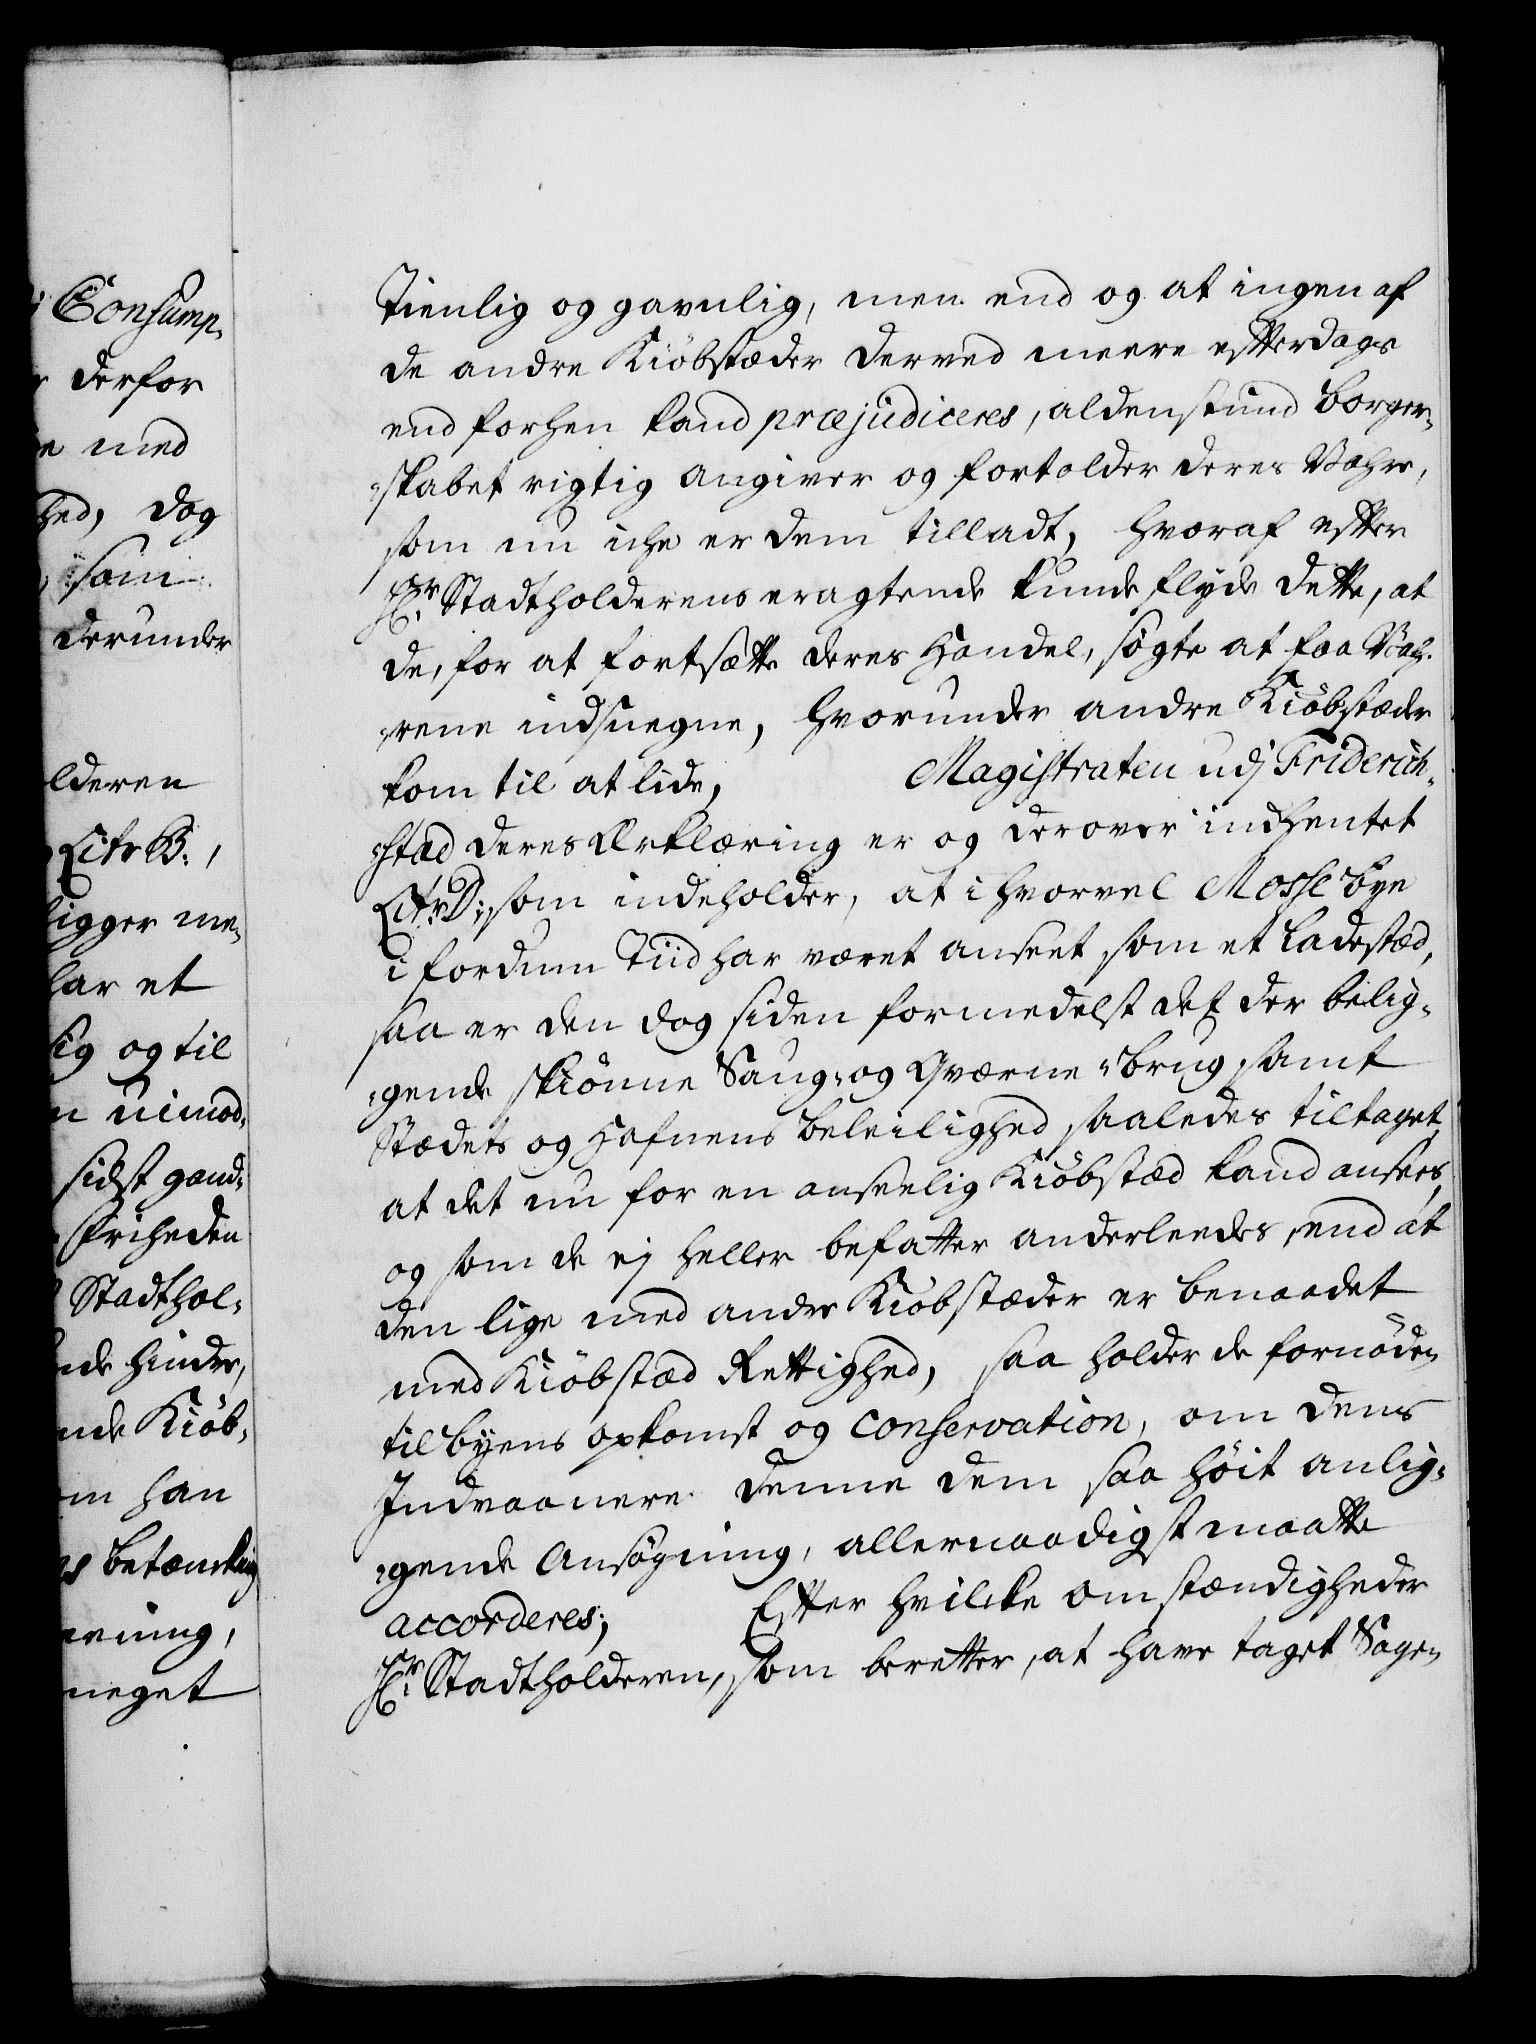 i Consump-
r derfor
e med
hed, dog
, som
derunder
lderen
Litr B.,
ligger me-
har et
sig og til
n uimod-
sidst gand-
friheden
Stadthol-
nde hindre,
nde Kiöb-
om han
gs betænkning
meget
Tienlig og gavnlig, men end og at ingen af
de andre Kiöbstæder derved meere effterdags
end forhen kand præjudiceres, aldenstund borger-
-skabet rigtig angiver og fortolder deres Vahre,
som nu iche er dem tilladt, hvoraf effter
Hr. Stadtholderens eragtende kunde flyde dette, at
de, for at fortsætte deres Handel, søgte at faa Vah-
-rene indsnegne, hvorunder andre Kiöbstæder
kom til at lide, Magistraten udj Friderich-
-stad deres Erklæring er og derover indhentet
Litr. D:, som indeholder, at i hvorvel Mosse bye
i fordum Tiid har været anseet som et ladestæd,
saa er den dog siden formedelst det der belig-
-gende skiönne Saug- og Qværne-brug samt
Stædets og Hafnens beleilighed saaledes tiltaget,
at det nu for en anseelig Kiöbstæd kand ansees,
og som de ej heller befatter anderleedes, end at
den lige med andre Kiöbstæder er benaadet
med Kiöbstæd Rettighed, saa holder de fornöden
til byens opkomst og conservation, om dens
Indvaanere denne dem saa höit anlig-
-gende Ansögning, allernaadigst maatte
accorderes; Effter hvilcke omstændigheder
Hr. Stadtholderen, som beretter, at have taget Sagen